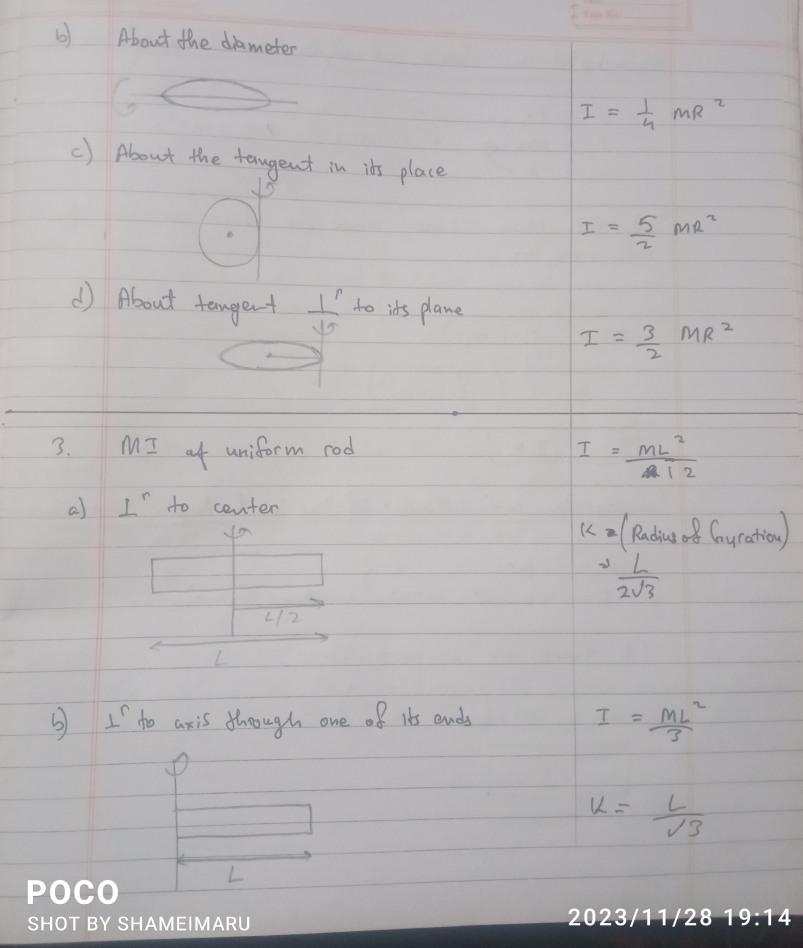 b) About the diameter
I = 1/4 MR²
c) About the tangent in its place
I = 5/2 MR²
d) About tangent ⊥r to its plane
I = 3/2 MR²
3. MI of uniform rod
I = ML²/12
a) ⊥r to center
K = (Radius of Gyration)
= L/2√3
L/2
L
b) ⊥r to axis through one of its ends
I = ML²/3
K = L/√3
L
POCO
SHOT BY SHAMEIMARU
2023/11/28 19:14